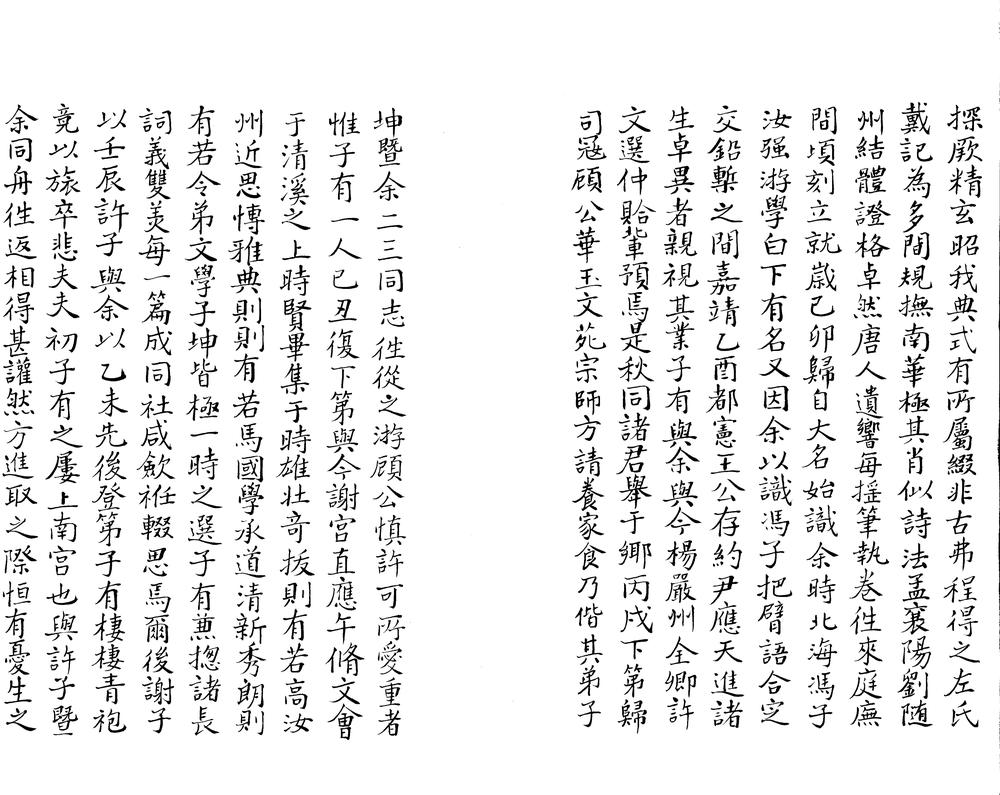 探厥精玄昭我典式有所屬綴非古弗程得之左氏
戴記為多間規撫南華極其肖似詩法孟襄陽劉随
州結體證格卓然唐人遺響每摇筆執卷徃來庭廡
間頃刻立就歲己卯歸自大名始識余時北海馮子
汝强游學白下有名又因余以識馮子把臂語合定
交鉛槧之間嘉靖乙酉都憲王公存約尹應天進諸
生卓異者親視其業子有與余與今楊嚴州全卿許
文選仲貽輩預焉是秋同諸君舉于鄉丙戌下第歸
司冦顧公華玉文苑宗師方請養家食乃偕其弟子
坤暨余二三同志徃從之游顧公慎許可所愛重者
惟子有一人己丑復下第與今謝宫直應午脩文會
于清溪之上時賢畢集于時雄壮竒拔則有若高汝
州近思愽雅典則則有若馬國學承道清新秀朗則
有若令弟文學子坤皆極一時之選子有兼揔諸長
詞義雙美每一篇成同社咸歛袵輟思焉爾後謝子
以壬辰許子與余以乙未先後登第子有棲棲青袍
竟以旅卒悲夫夫初子有之屢上南宫也與許子暨
余同舟徃返相得甚讙然方進取之際恒有憂生之